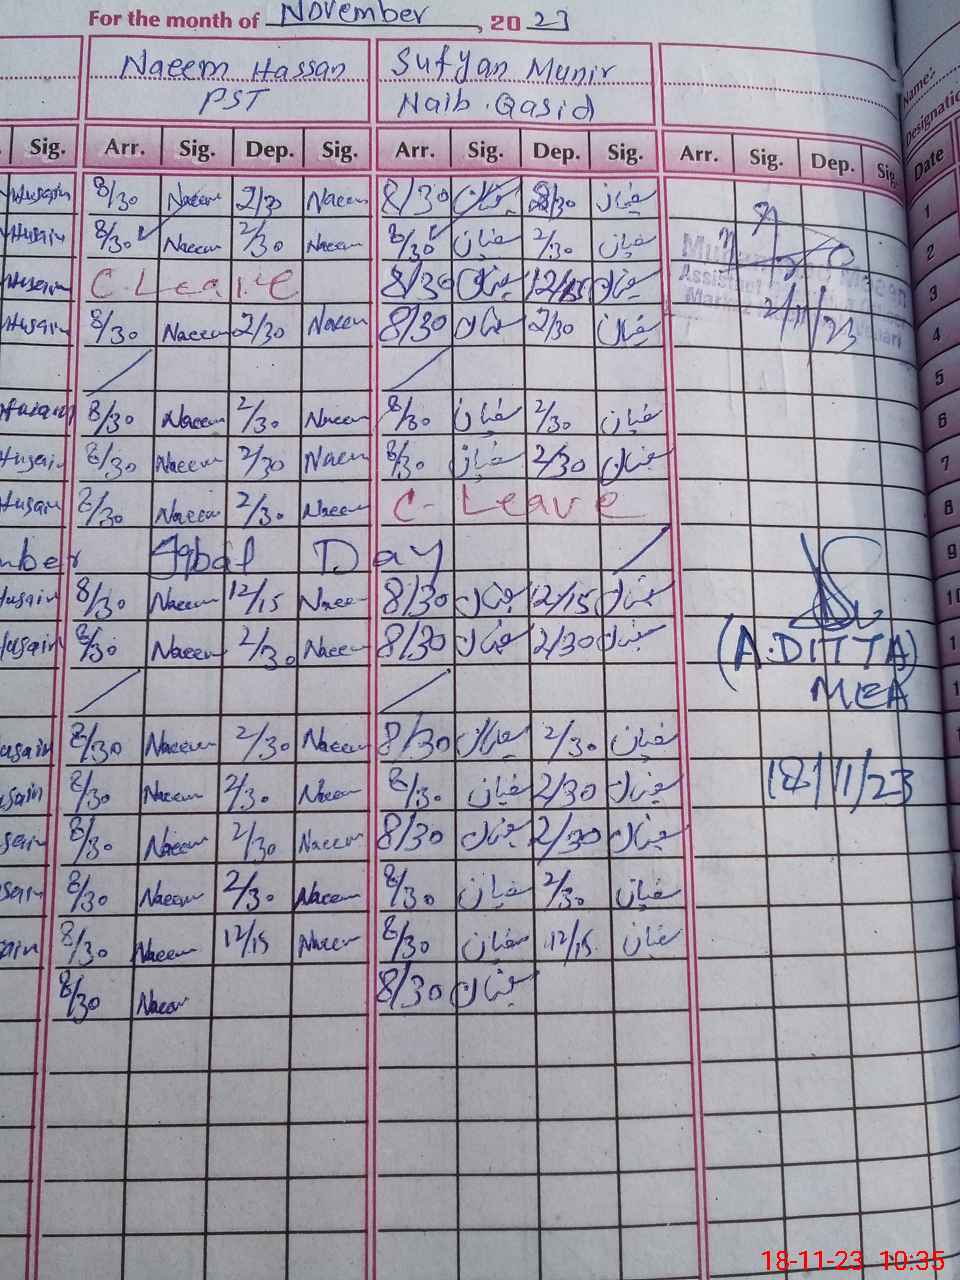 For the month of November, 20 23
Naeem Hassan Sufyan Munir Name:
PST Naib Qasid Designatio
Sig. Arr. Sig. Dep. Sig. Arr. Sig. Dep. Sig. Arr. Sig. Dep. Sig. Date
Husain 8/30 Naeem 2/30 Naeem 8/30 سفیان 2/30 سفیان 1
Husain 8/30 Naeem 2/30 Naeem 8/30 سفیان 2/30 سفیان 2
Husain C. Leave 8/30 سفیان 12/15 سفیان 3
Husain 8/30 Naeem 2/30 Naeem 8/30 سفیان 2/30 سفیان 2/11/23 4
5
Husain 8/30 Naeem 2/30 Naeem 8/30 سفیان 2/30 سفیان 6
Husain 8/30 Naeem 2/30 Naeem 8/30 سفیان 2/30 سفیان 7
Husain 8/30 Naeem 2/30 Naeem C- Leave 8
mber Iqbal Day 9
Husain 8/30 Naeem 12/15 Naeem 8/30 سفیان 12/15 سفیان 10
Husain 8/30 Naeem 2/30 Naeem 8/30 سفیان 2/30 سفیان (A.DITTA) 1
MEA 1
usain 8/30 Naeem 2/30 Naeem 8/30 سفیان 2/30 سفیان 1
sain 8/30 Naeem 2/30 Naeem 8/30 سفیان 2/30 سفیان 18/11/23
sain 8/30 Naeem 2/30 Naeem 8/30 سفیان 2/30 سفیان
sain 8/30 Naeem 2/30 Naeem 8/30 سفیان 2/30 سفیان
ain 8/30 Naeem 12/15 Naeem 8/30 سفیان 12/15 سفیان
8/30 Naeem 8/30 سفیان
18-11-23 10:35